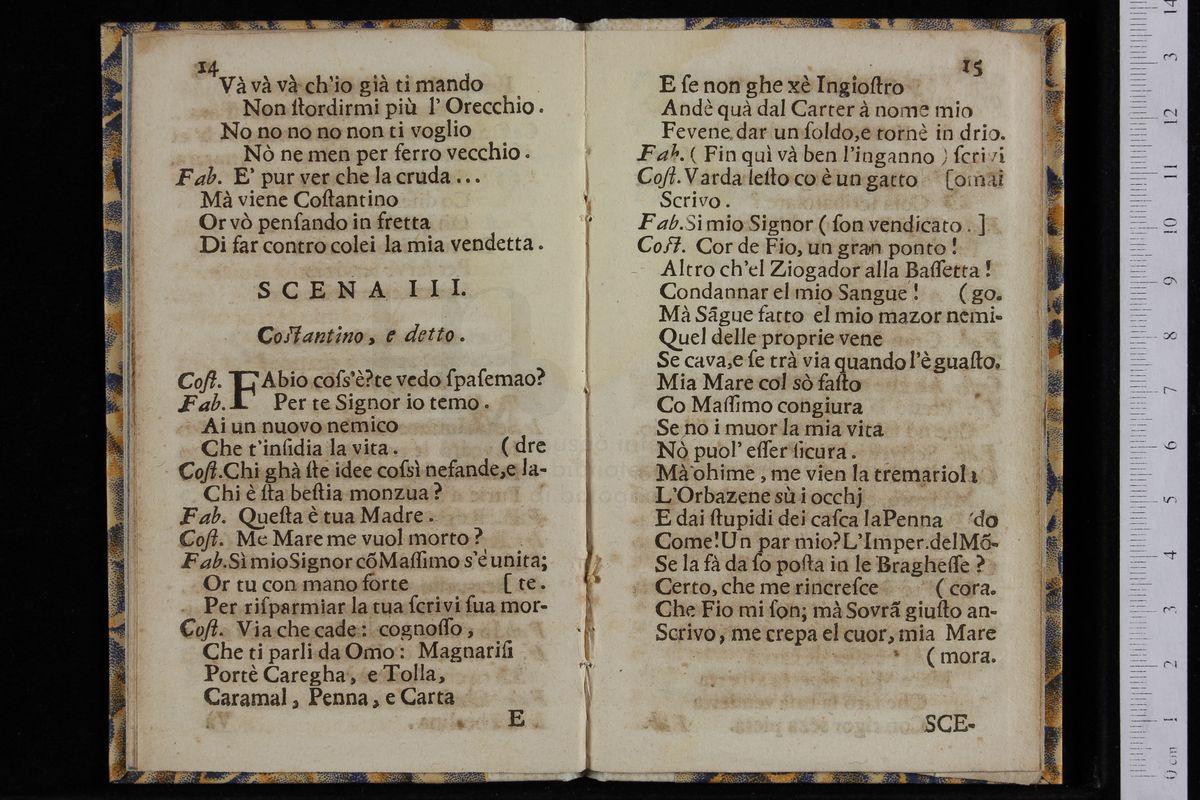 14
Và và và ch'io già ti mando
Non ſtordirmi più l'Orecchio.
No no no no non ti voglio
Nò ne men per ferro vecchio.
Fab. E' pur ver che la cruda...
Mà viene Coſtantino
Or vò penſando in fretta
Di far contro colei la mia vendetta.
SCENA III.
Coſtantino, e detto.
Coſt. FAbio coſs'è?te vedo ſpaſemao?
Fab. Per te Signor io temo.
Ai un nuovo nemico
Che t'inſidia la vita. (dre
Coſt.Chi ghà ſte idee coſsì nefande,e la-
Chi è ſta beſtia monzua?
Fab. Queſta è tua Madre.
Coſt. Me Mare me vuol morto?
Fab.Sì mioSignor cõMaſſimo s'è unita;
Or tu con mano forte [te.
Per riſparmiar la tua ſcrivi ſua mor-
Coſt. Via che cade: cognoſſo,
Che ti parli da Omo: Magnariſi
Portè Caregha, e Tolla,
Caramal, Penna, e Carta
E
15
E ſe non ghe xè Ingioſtro
Andè quà dal Carter à nome mio
Fevene dar un ſoldo,e tornè in drio.
Fab. (Fin quì và ben l'inganno) ſcrivi
Coſt.Varda leſto co è un gatto [omai
Scrivo.
Fab.Si mio Signor (ſon vendicato.]
Coſt. Cor de Fio, un gran ponto!
Altro ch'el Ziogador alla Baſſetta!
Condannar el mio Sangue! (go.
Mà Sãgue fatto el mio mazor nemi-
Quel delle proprie vene
Se cava,e ſe trà via quando l'è guaſto.
Mia Mare col sò faſto
Co Maſſimo congiura
Se no i muor la mia vita
Nò puol' eſſer ſicura.
Mà ohime, me vien la tremariola
L'Orbazene sù i occhj
E dai ſtupidi dei caſca laPenna (do
Come!Un par mio?L'Imper.delMõ-
Se la fà da ſo poſta in le Bragheſſe?
Certo, che me rincreſce (cora.
Che Fio mi ſon; mà Sovrã giuſto an-
Scrivo, me crepa el cuor, mia Mare
(mora.
SCE-
0 cm 1 2 3 4 5 6 7 8 9 10 11 12 3 14